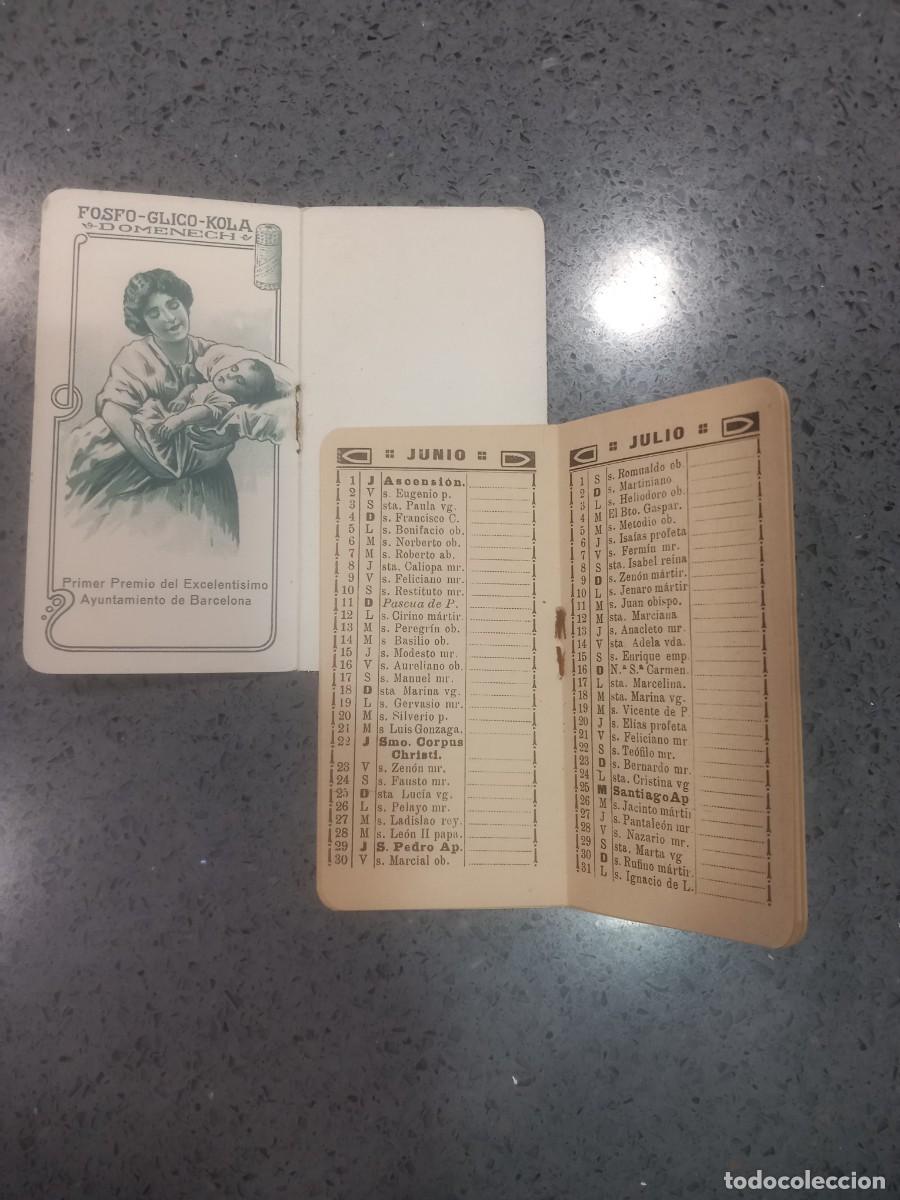 FOSFO-GLICO-KOLA
DOMENECH
Primer Premio del Excelentisimo
Ayuntamiento de Barcelona
JUNIO
1 J Ascensión.
2 V s. Eugenio p.
3 S sta. Paula vg.
4 D s. Francisco C.
5 L s. Bonifacio ob.
6 M s. Norberto ob.
7 M s. Roberto ab.
8 J sta. Caliopa mr.
9 V s. Feliciano mr.
10 S s. Restituto mr.
11 D Pascua de P.
12 L s. Cirino mártir.
13 M s. Peregrín ob.
14 M s Basilio ob.
15 J s. Modesto mr.
16 V s. Aureliano ob.
17 S s. Manuel mr.
18 D sta Marina vg.
19 L s. Gervasio mr.
20 M s. Silverio p.
21 M s Luis Gonzaga.
22 J Smo. Corpus
Christi.
23 V s. Zenón mr.
24 S s. Fausto mr.
25 D sta Lucía vg.
26 L s. Pelayo mr.
27 M s. Ladislao rey.
28 M s. León II papa.
29 J S. Pedro Ap.
30 V s. Marcial ob.
JULIO
1 S s. Romualdo ob.
2 D s. Martiniano
3 L s. Heliodoro ob.
4 M El Bto. Gaspar.
5 M s. Metodio ob.
6 J s. Isaías profeta
7 V s. Fermín mr.
8 S sta. Isabel reina
9 D s. Zenón mártir.
10 L s. Jenaro mártir
11 M s. Juan obispo.
12 M sta. Marciana
13 J s. Anacleto mr.
14 V sta Adela vda.
15 S s. Enrique emp.
16 D N.ª S.ª Carmen.
17 L sta. Marcelina.
18 M sta. Marina vg.
19 M s. Vicente de P
20 J s. Elías profeta
21 V s. Feliciano mr
22 S s. Teófilo mr.
23 D s. Bernardo mr.
24 L sta. Cristina vg
25 M Santiago Ap
26 M s. Jacinto mártir
27 J s. Pantaleón mr
28 V s. Nazario mr.
29 S sta. Marta vg
30 D s. Rufino mártir.
31 L s. Ignacio de L.
todocoleccion